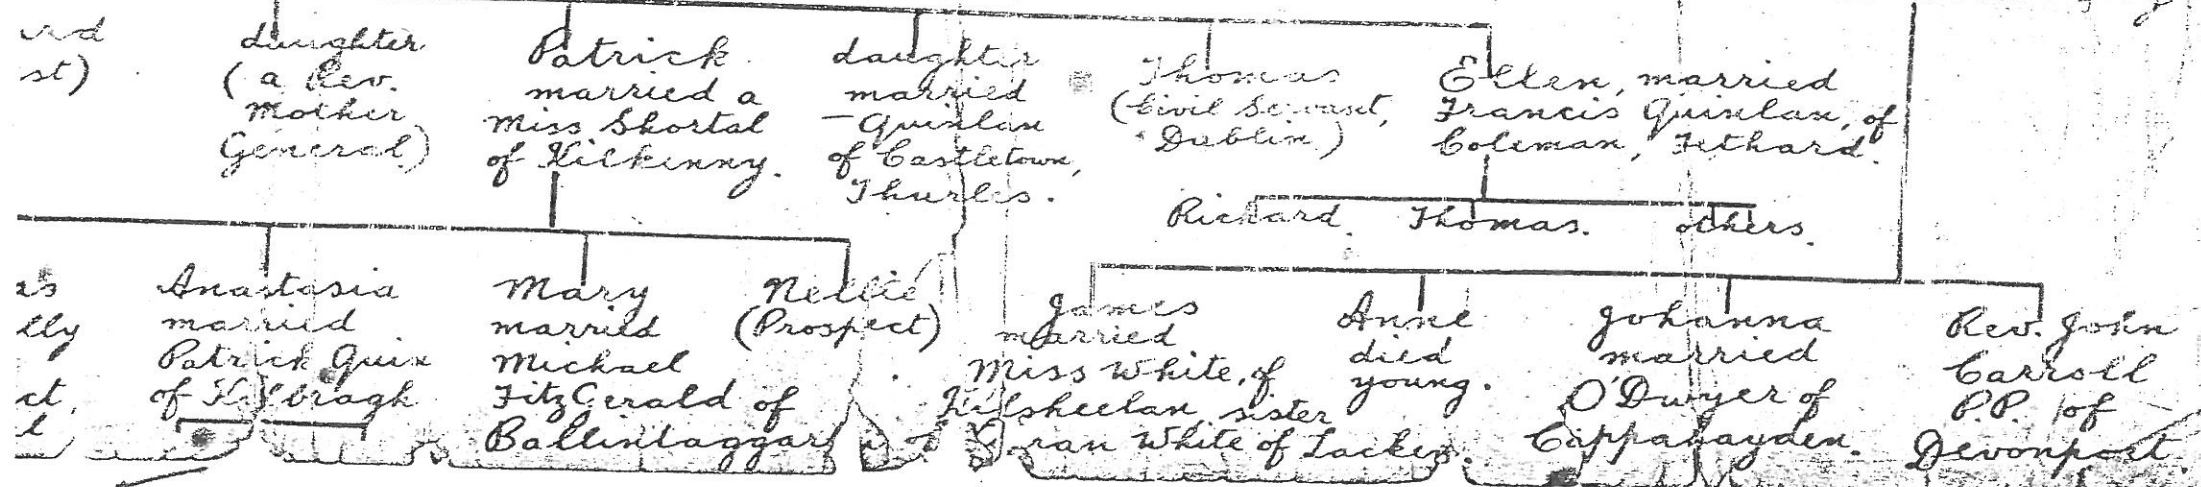 st)
daughter
(a Rev.
Mother
General)
Patrick
married a
Miss Shortal
of Kilkenny.
daughter
married
– Quinlan
of Castletown,
Thurles.
Thomas
(Civil Servant,
Dublin.)
Ellen, married
Francis Quinlan, of
Coleman, Fethard.
Richard. Thomas. others.
lly
ct,
l
Anastasia
married
Patrick Quin
of Kilbragh
Mary
married
Michael
FitzGerald of
Ballintaggart
Nellie
(Prospect)
James
married
Miss White, of
Kilsheelan, sister
of White of Lacken.
Anne
died
young.
Johanna
married
O'Dwyer of
Cappahayden.
Rev. John
Carroll
P.P. of
Devonport